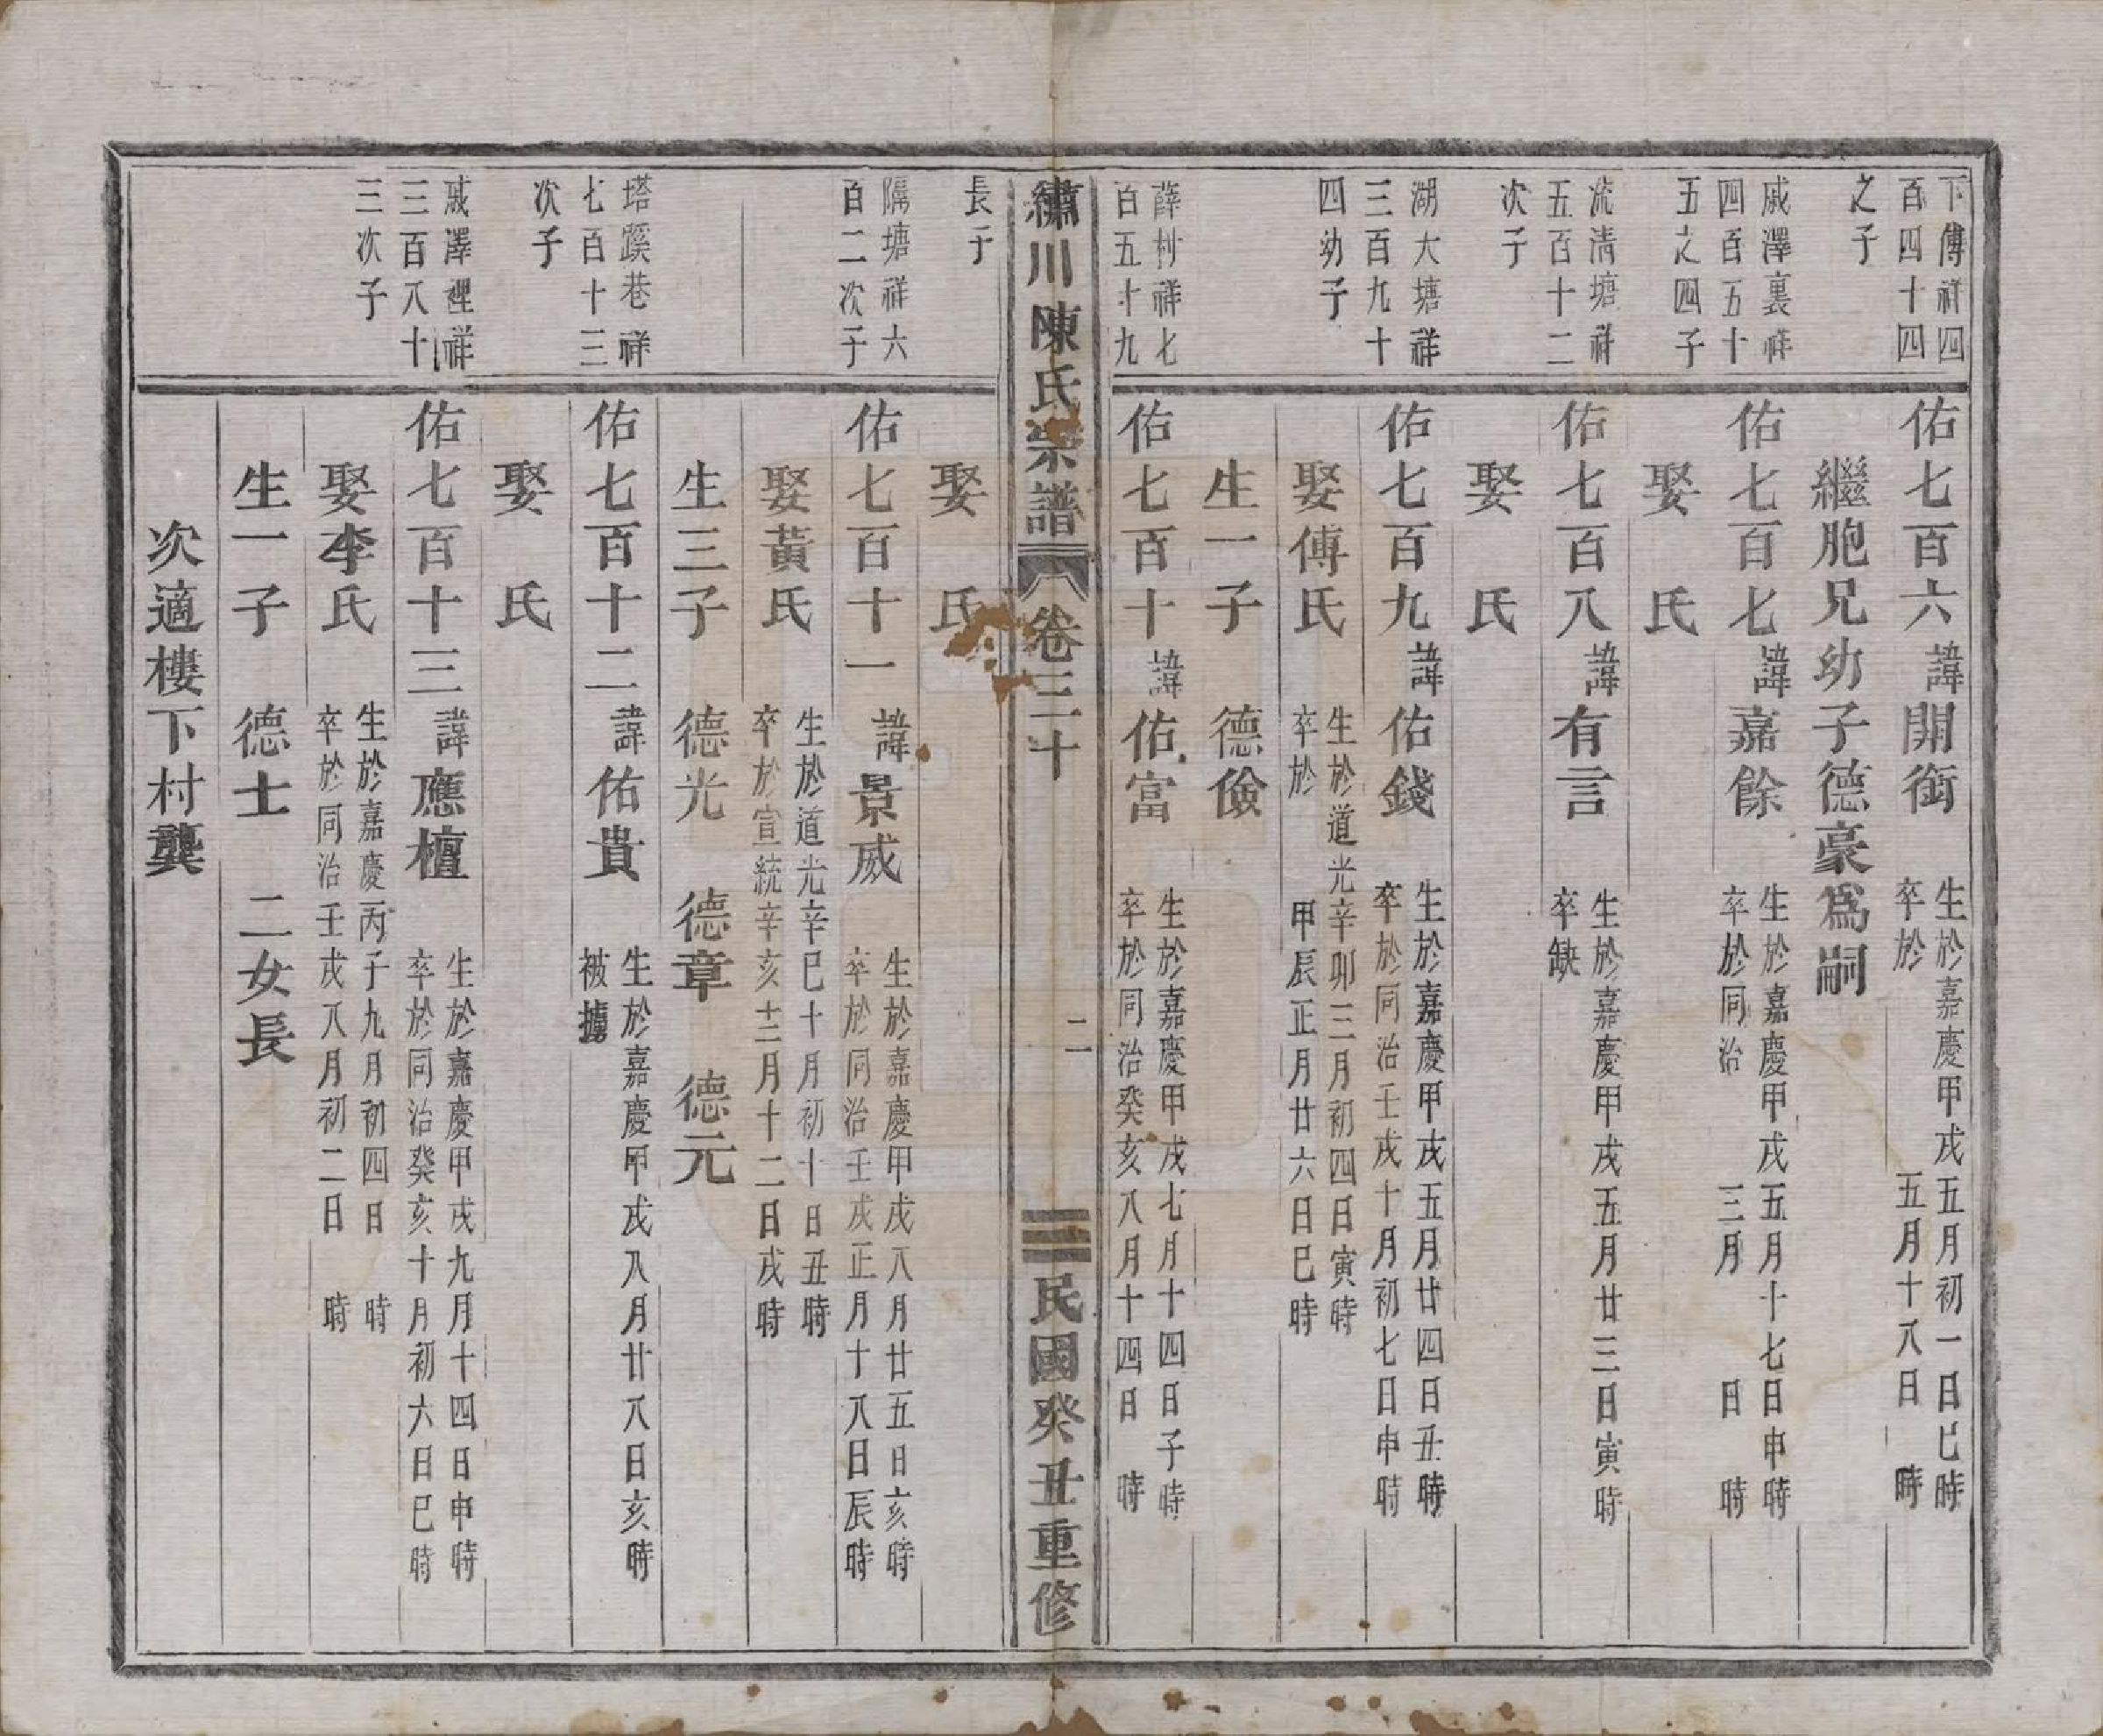 下傅祥四
百四十四
之子
佑七百六諱開銜
生於嘉慶甲戌五月初一日巳時
卒於 五月十八日 時
繼胞兄幼子德豪爲嗣
戚澤裏祥
四百五十
五之四子
佑七百七諱嘉餘
生於嘉慶甲戌五月十七日申時
卒於同治 三月 日 時
娶 氏
流清塘祥
五百十二
次子
佑七百八諱有言
生於嘉慶甲戌五月廿三日寅時
卒缺
娶 氏
湖大塘祥
三百九十
四幼子
佑七百九諱佑錢
生於嘉慶甲戌五月廿四日丑時
卒於同治壬戌十月初七日申時
娶傅氏
生於道光辛卯三月初四日寅時
卒於 甲辰正月廿六日巳時
生一子 德儉
薛村祥七
百五十九
佑七百十諱佑富
生於嘉慶甲戌七月十四日子時
卒於同治癸亥八月十四日 時
繡川陳氏宗譜 卷三十 二 民國癸丑重修
長子
娶 氏
隔塘祥六
百二次子
佑七百十一諱景威
生於嘉慶甲戌八月廿五日亥時
卒於同治壬戌正月十八日辰時
娶黃氏
生於道光辛巳十月初十日丑時
卒於宣統辛亥十二月十二日戌時
生三子 德光 德章 德元
塔蹊巷祥
七百十三
次子
佑七百十二諱佑貴
生於嘉慶甲戌八月廿八日亥時
被擄
娶 氏
戚澤裡祥
三百八十
三次子
佑七百十三諱應檀
生於嘉慶甲戌九月十四日申時
卒於同治癸亥十月初六日巳時
娶李氏
生於嘉慶丙子九月初四日 時
卒於同治壬戌八月初二日 時
生一子 德士 二女長
次適樓下村龔